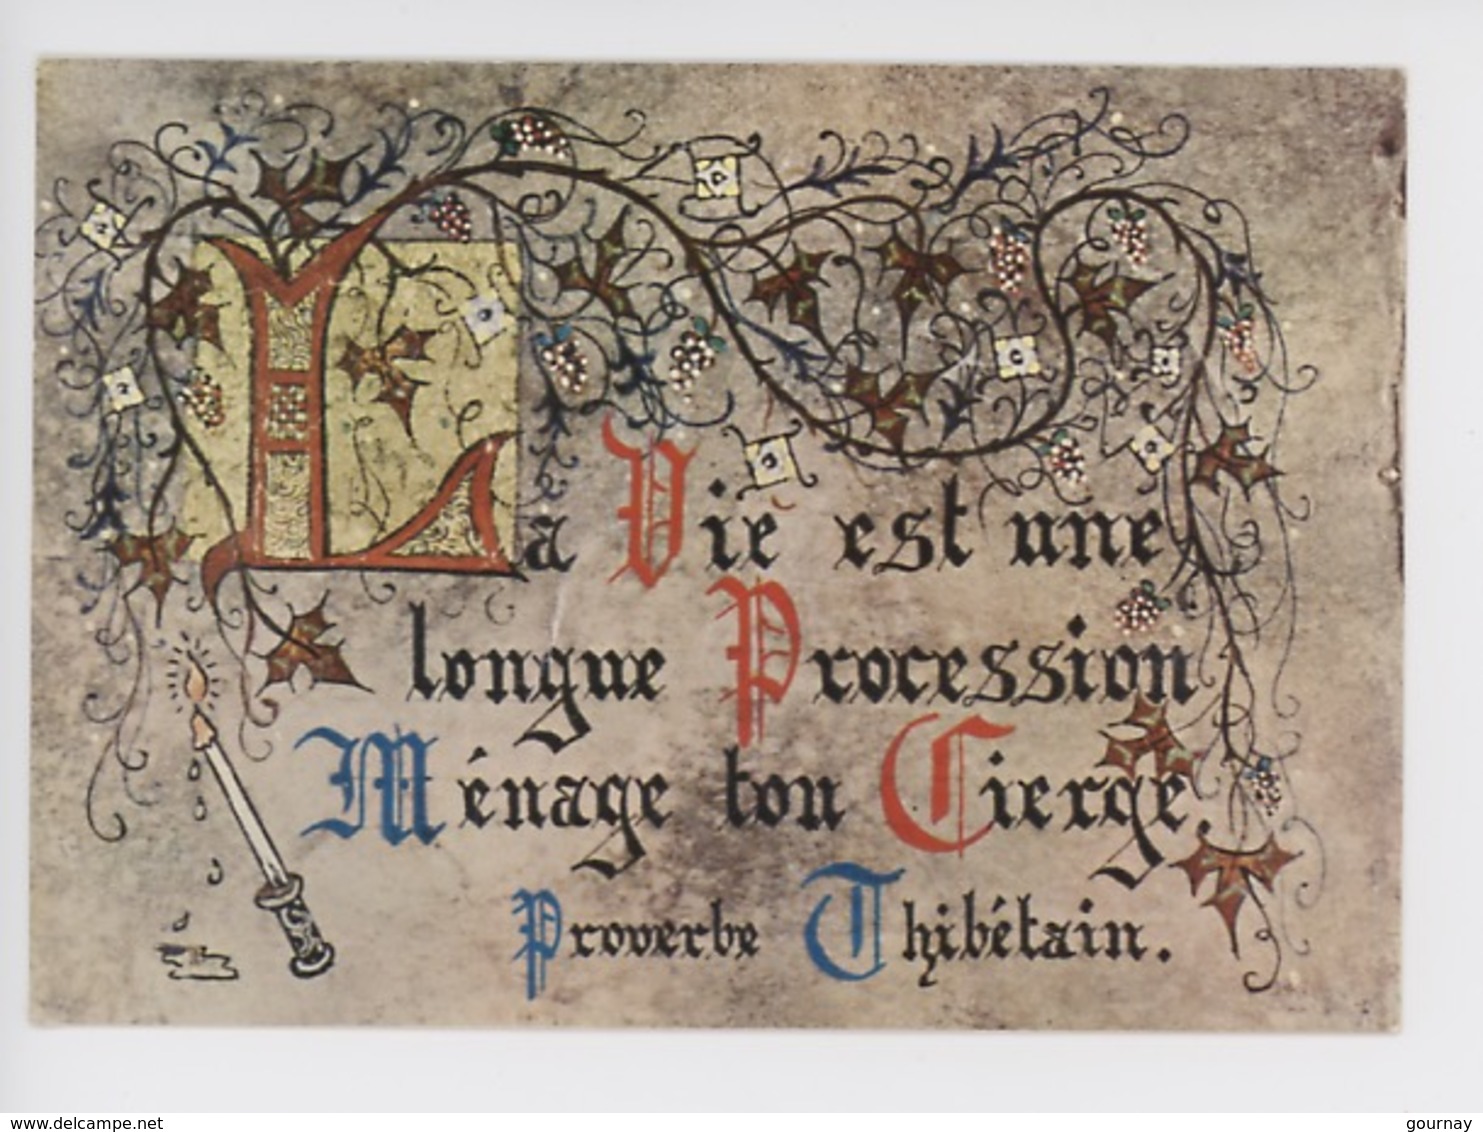 La Vie est une
longue Procession
Ménage ton Cierge.
Proverbe Thibétain.
www.delcampe.net
gournay